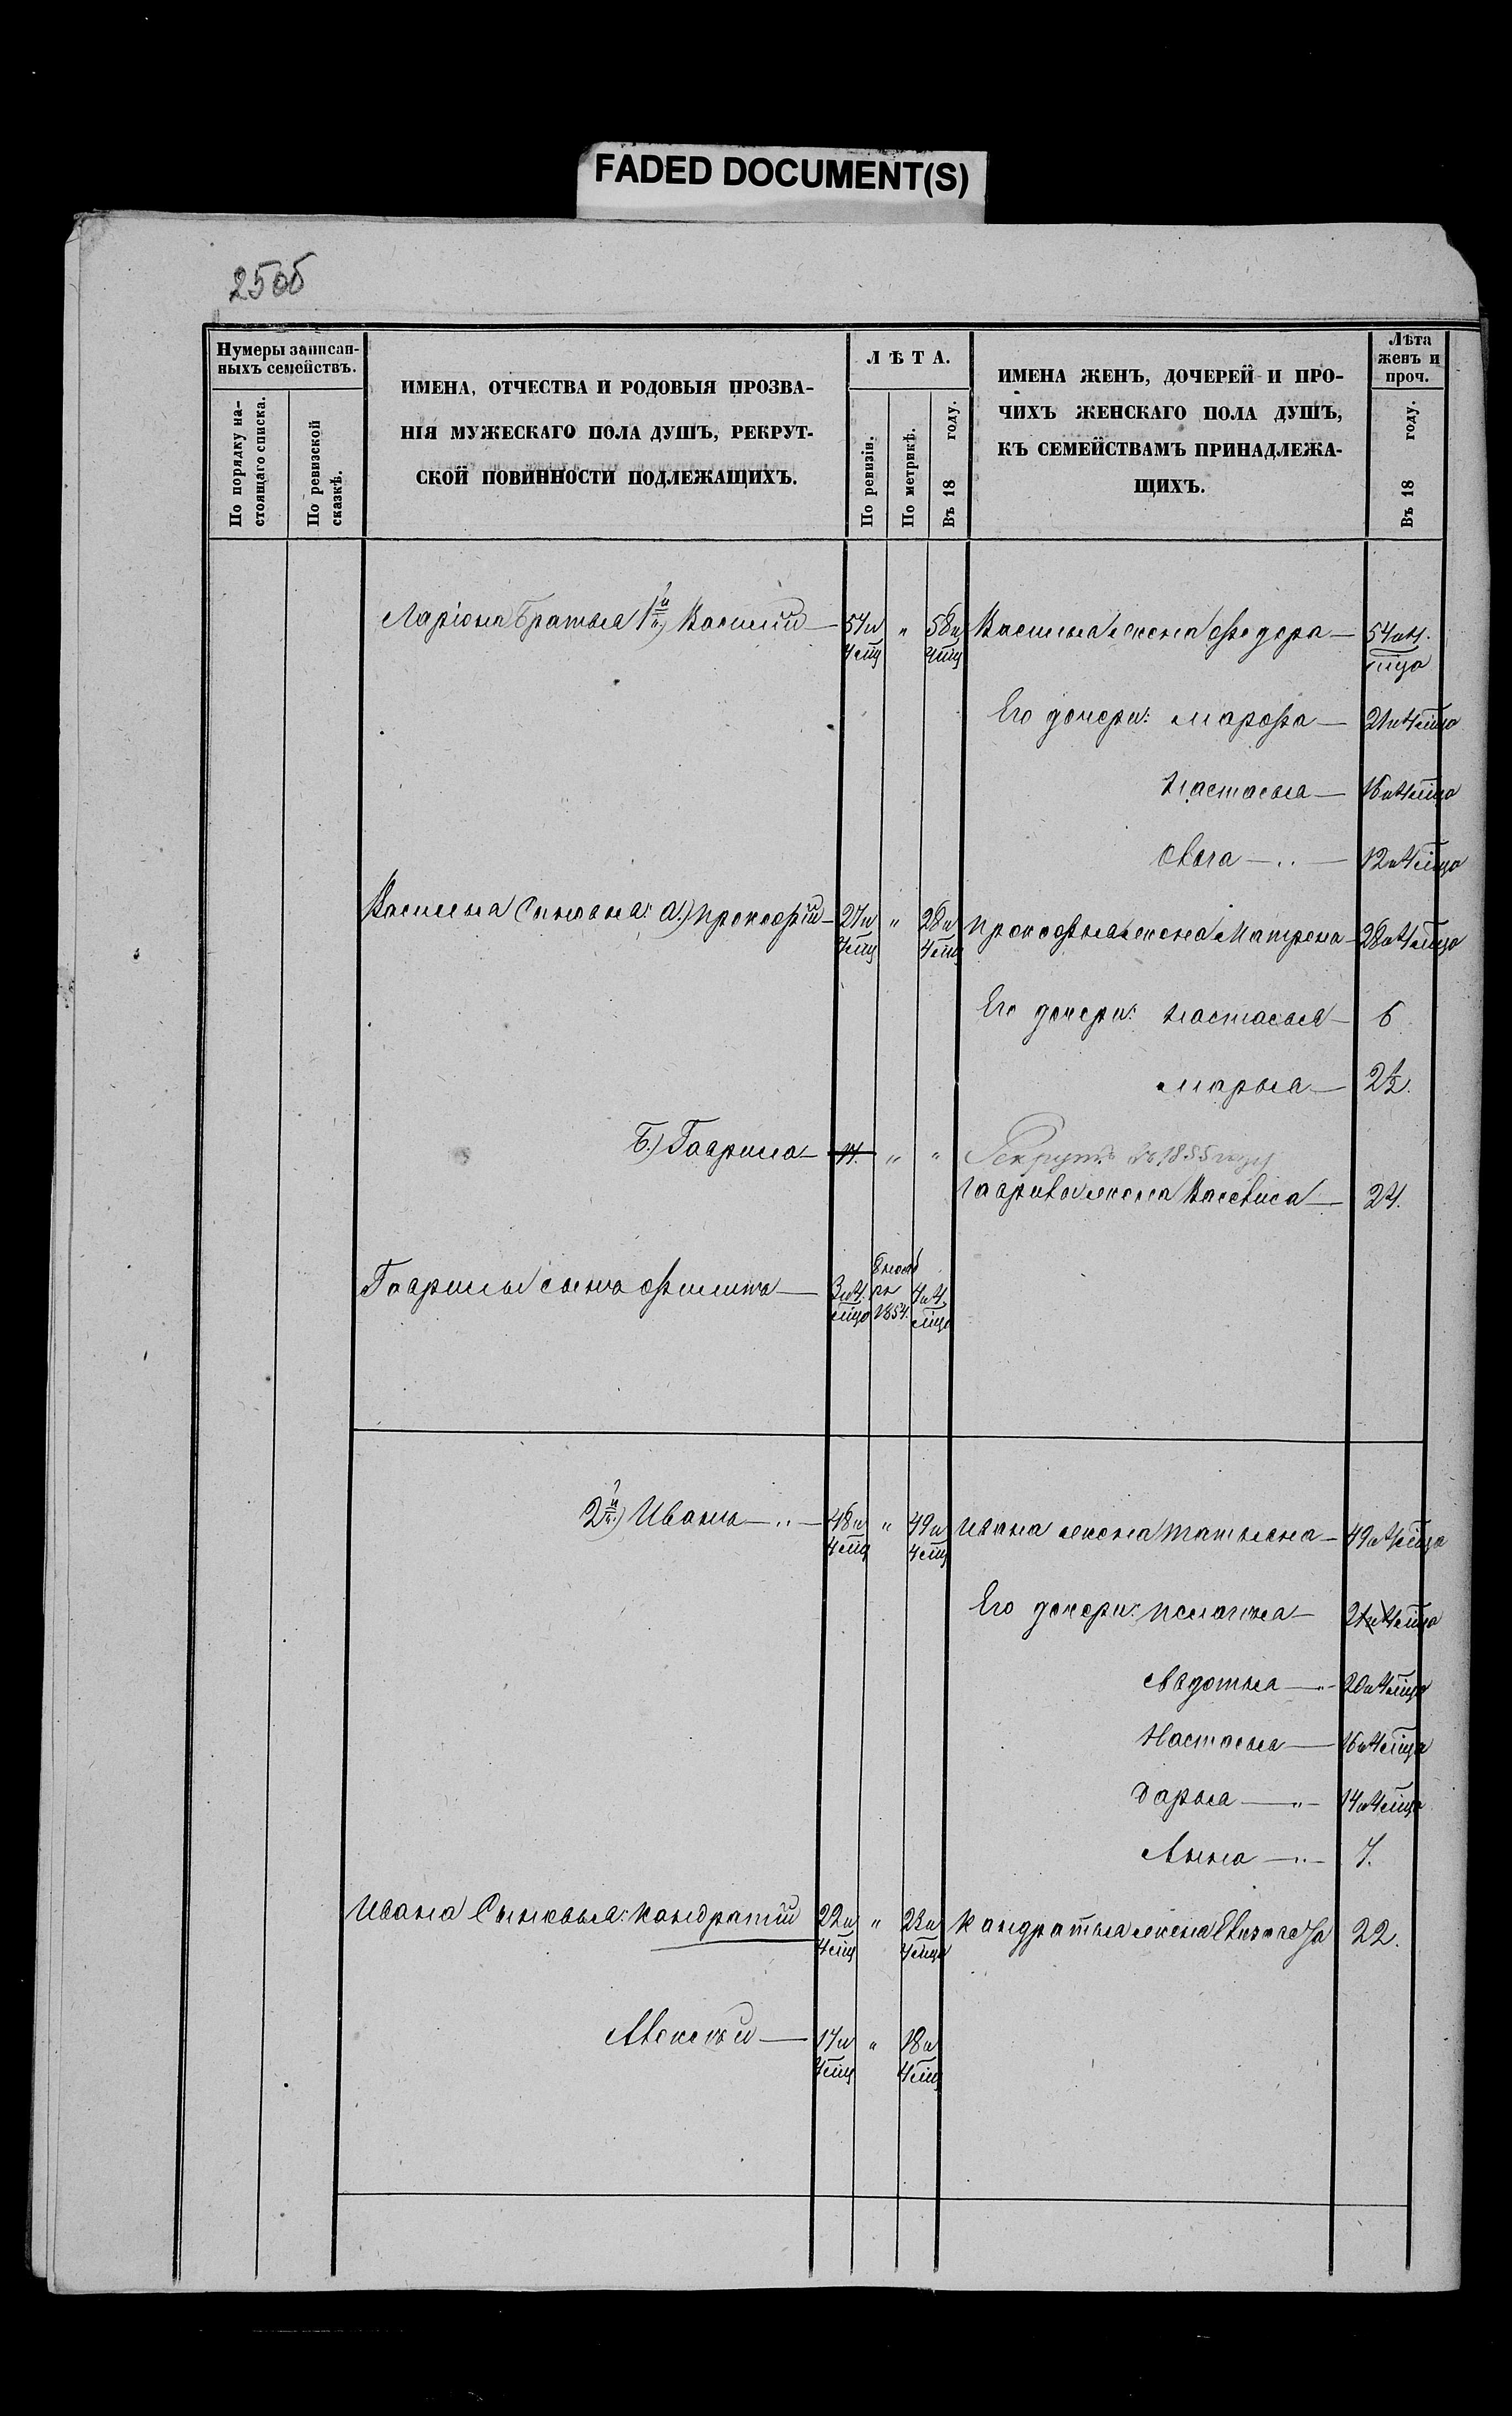 FADED DOCUMENT(S)
25об
Нумеры записан-
ныхъ семействъ.
По порядку на-
стоящаго списка.
По ревизской
сказкѣ.
ИМЕНА, ОТЧЕСТВА И РОДОВЫЯ ПРОЗВА-
НІЯ МУЖЕСКАГО ПОЛА ДУШЪ, РЕКРУТ-
СКОЙ ПОВИННОСТИ ПОДЛЕЖАЩИХЪ.
ЛѢТА.
По ревизіи.
По метрикѣ.
Въ 18 году.
ИМЕНА ЖЕНЪ, ДОЧЕРЕЙ И ПРО-
ЧИХЪ ЖЕНСКАГО ПОЛА ДУШЪ,
КЪ СЕМЕЙСТВАМЪ ПРИНАДЛЕЖА-
ЩИХЪ.
Лѣта
женъ и
проч.
Въ 18 году.
Ларіона братья 1й) Василій — 57 и 4 мц " 58 и 4 мц Василья жена Федора — 54 и 4 мца
Его дочери: Марфа — 21 и 4 мца
Настасья — 16 и 4 мца
Ольга — 12 и 4 мца
Василья Сыновья: а.) Прокофій — 27 и 4 мц " 28 и 4 мц Прокофья жена Матрена — 28 и 4 мца
Его дочери: Настасья — 6
Марья — 2½.
Б.) Гаврила — " " Рекрутъ въ 1855 году
Гаврилы жена Васелиса — 24.
Гаврилы сынъ Филипъ — 3 и 4 мца 1854. 4 и 4 мца
2й) Иванъ — 48 и 4 мц " 49 и 4 мц Ивана жена Татьяна — 49 и 4 мца
Его дочери: Пелагея — 21 и 4 мца
Авдотья — 20 и 4 мца
Настасья — 16 и 4 мца
Дарья — 14 и 4 мца
Анна — 7.
Ивана Сыновья: Кондратій 22 и 4 мц " 23 и 4 мца Кандратья жена Елизавета 22.
Алексѣй — 17 и 4 мц " 18 и 4 мц